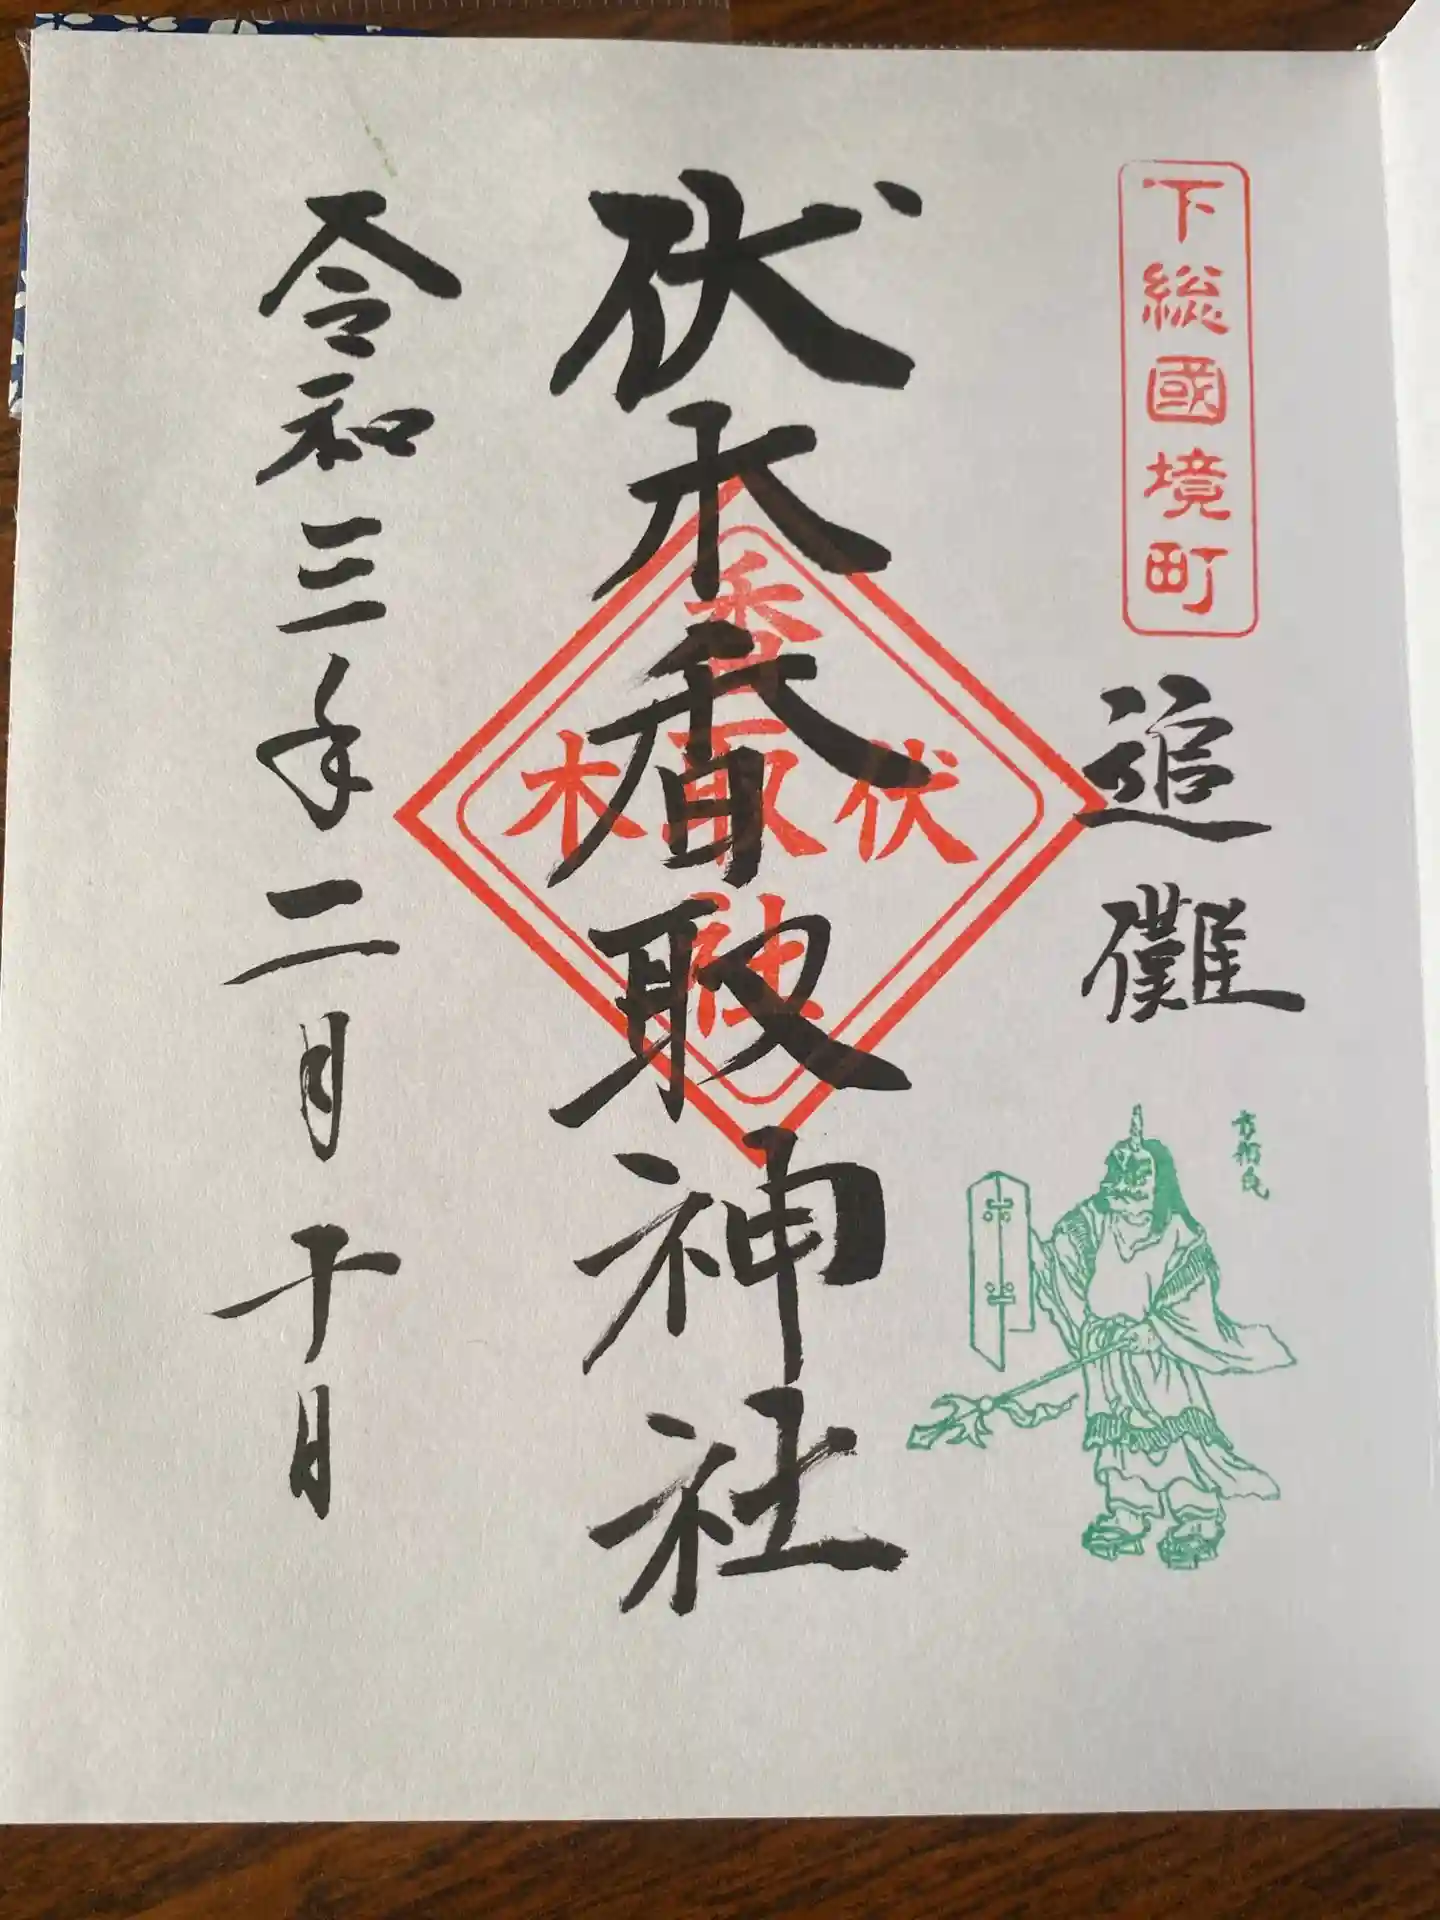 下総國境町
追儺
方相氏
伏木香取神社
香取社
伏
木
令和三年二月十日